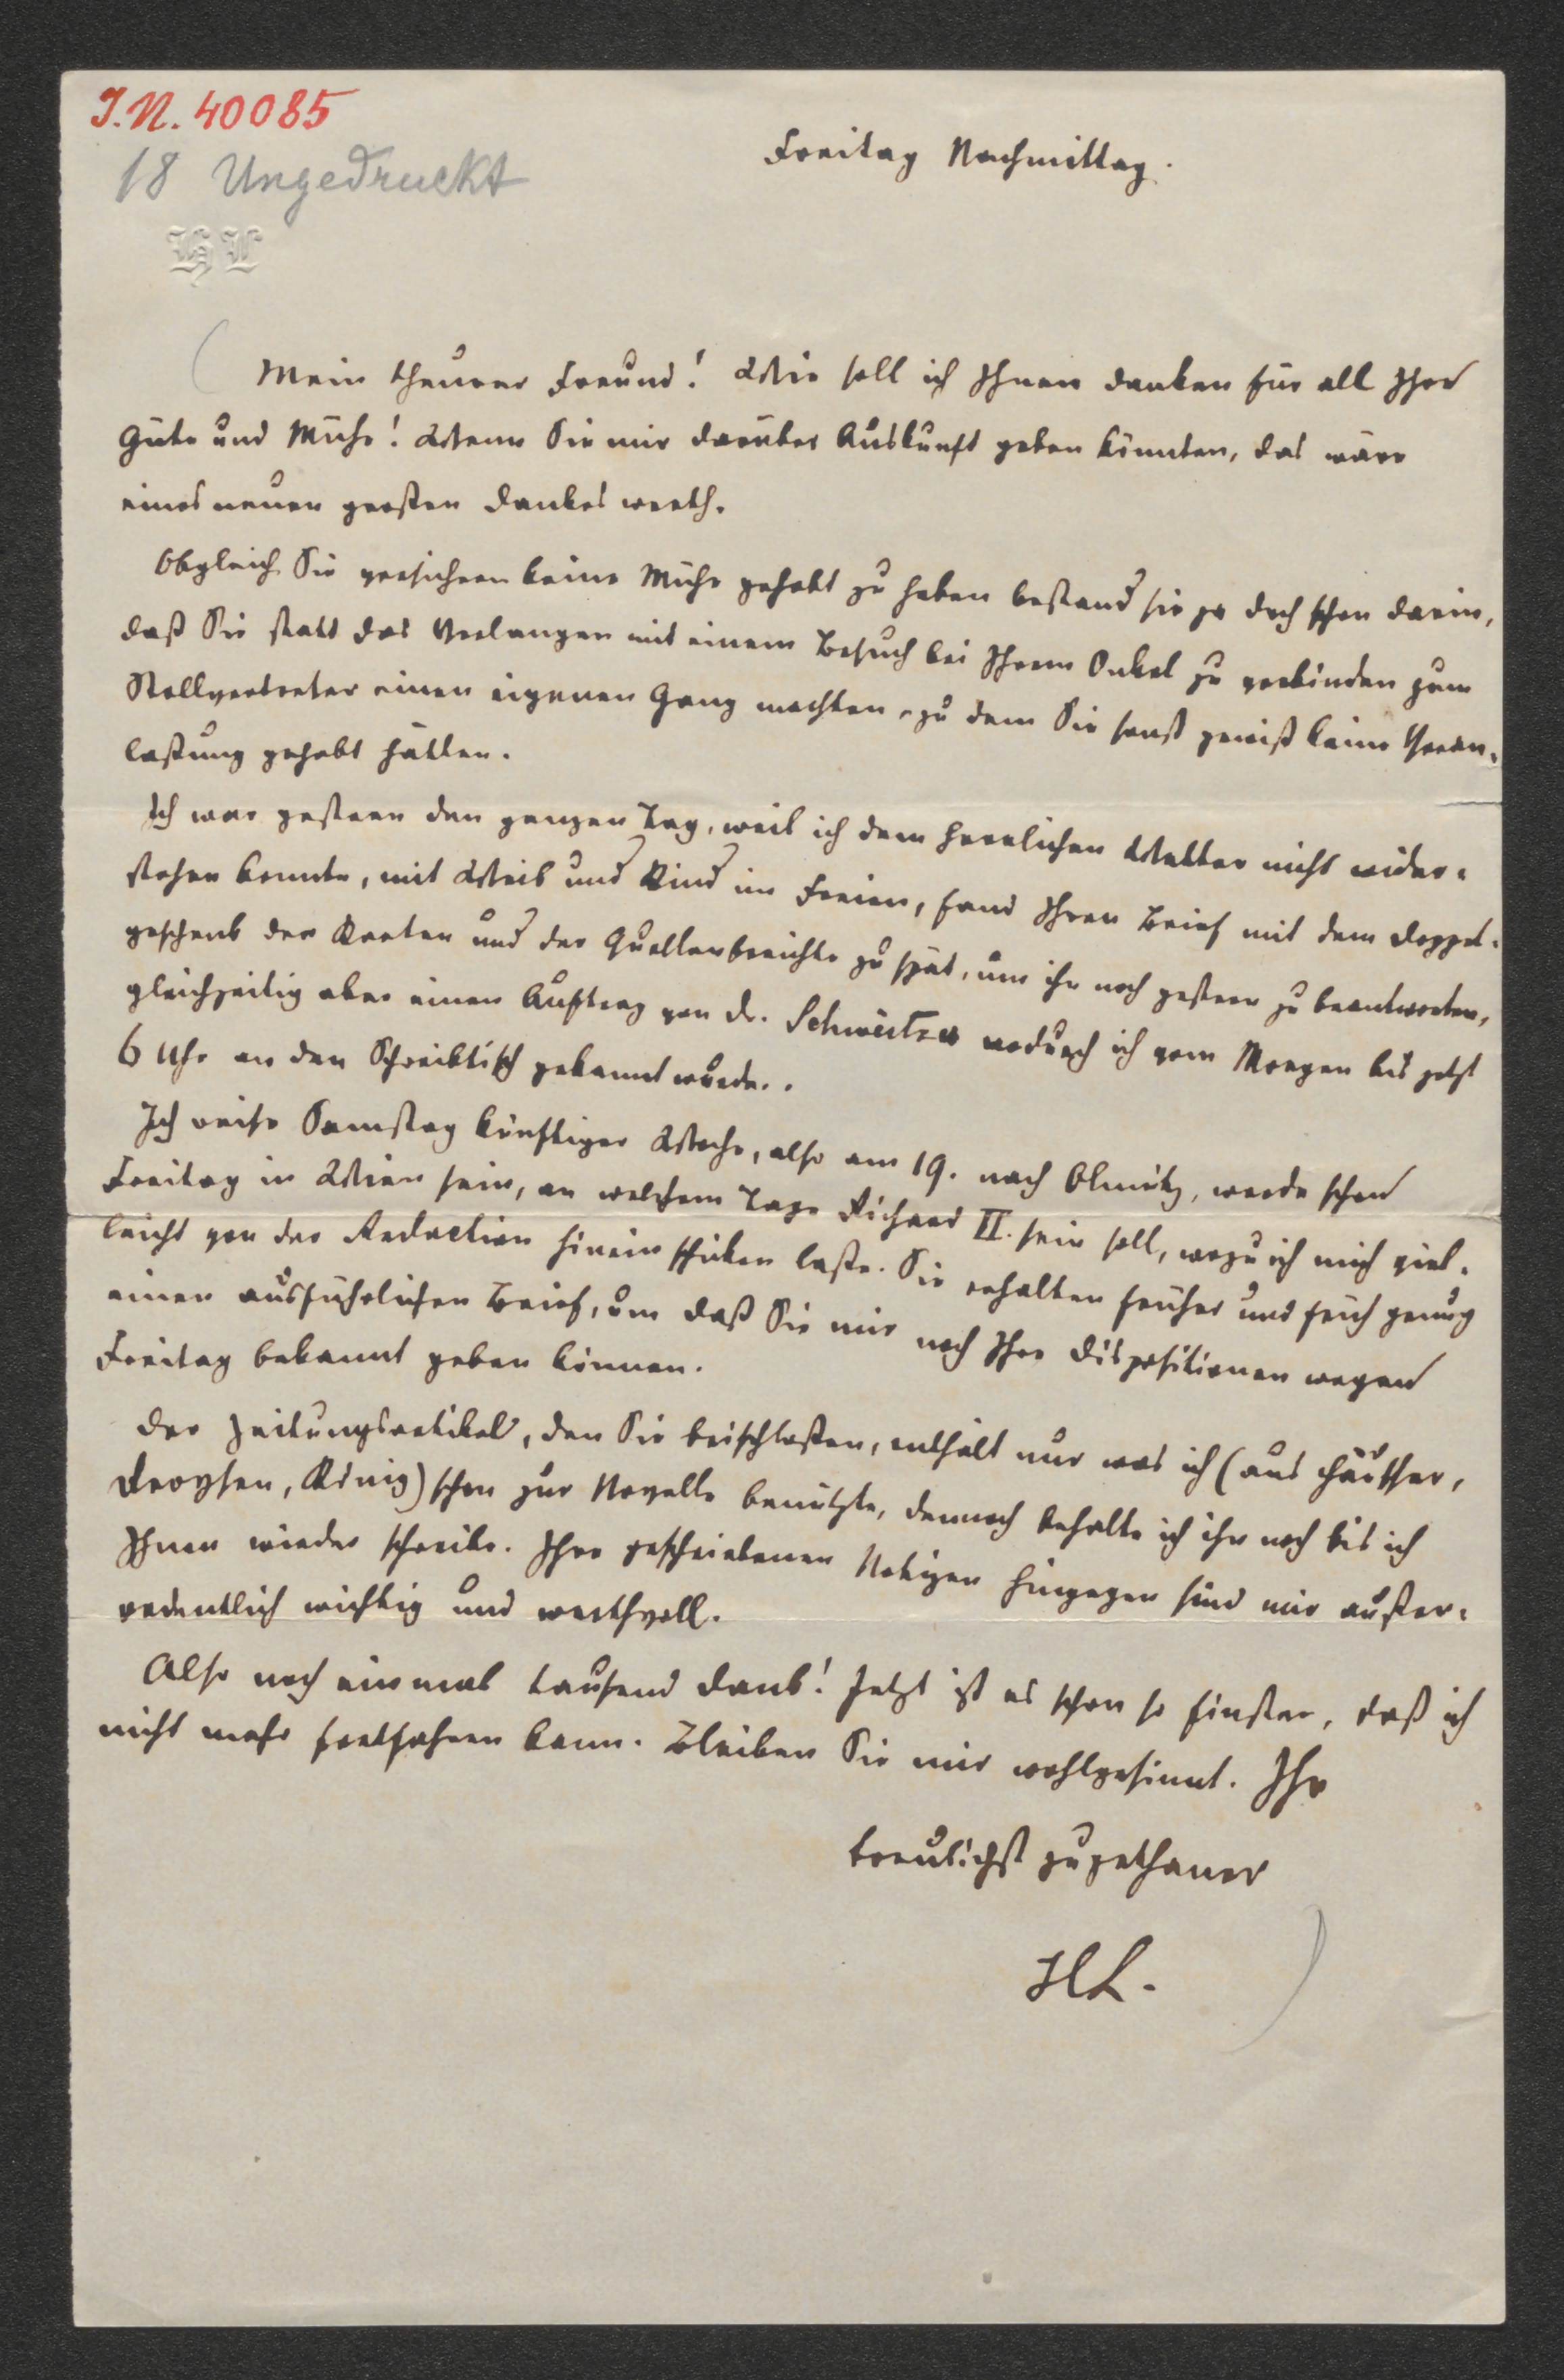 I.N. 40085
18 Ungedruckt
HL
Freitag Nachmittag.
Mein theurer Freund! Wie soll ich Ihnen danken für all Ihre
Güte und Mühe! Wenn Sie mir darüber Auskunft geben könnten, das wäre
eines neuen großen Dankes werth.
Obgleich Sie versichern keine Mühe gehabt zu haben bestand sie ja doch schon darin,
daß Sie statt das Verlangen mit einem Besuch bei Ihrem Onkel zu verbinden zum
Stellvertreter einen eigenen Gang machten, zu dem Sie sonst gewiß keine Veran-
laßung gehabt hätten.
Ich war gestern den ganzen Tag, weil ich dem herrlichen Wetter nicht wider-
stehen konnte, mit Weib und Kind im Freien, fand Ihren Brief mit dem Doppel-
geschenk der Karten und der Quellenberichte zu spät, um ihn noch gestern zu beantworten,
gleichzeitig aber einen Auftrag von Dr. wodurch ich vom Morgen bis jetzt
6 Uhr an den Schreibtisch gebannt wurde..
Ich reise Samstag künftiger Woche, also am 19. nach Olmütz, werde schon
Freitag in Wien sein, an welchem Tage Richard II. sein soll, wozu ich mich viel-
leicht von der Redaction hinein schicken laße. Sie erhalten früher und früh genug
einen ausführlichen Brief, um daß Sie mir noch Ihre Dispositionen wegen
Freitag bekannt geben können.
Der Zeitungsartikel, den Sie beischloßen, enthält nur was ich (aus Häusser,
Droysen, König) schon zur Novelle benützte, dennoch behalte ich ihn noch bis ich
Ihnen wieder schreibe. Ihre geschriebenen Notizen hingegen sind mir außer-
ordentlich wichtig und werthvoll.
Also noch einmal tausend Dank! Jetzt ist es schon so finster, daß ich
nicht mehr fortfahren kann. Bleiben Sie mir wohlgesinnt. Ihr
treulichst zugethaner
HL.